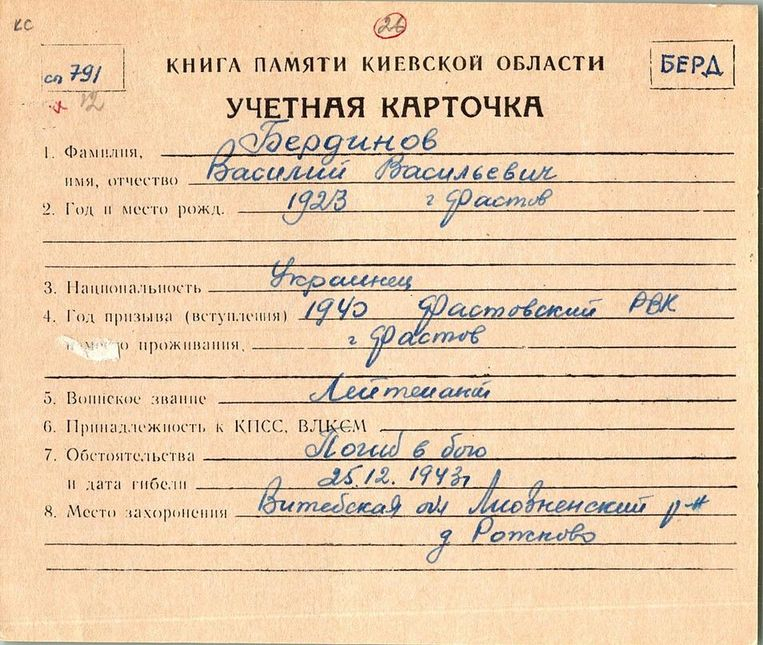 КС
26
сп 791
12
КНИГА ПАМЯТИ КИЕВСКОЙ ОБЛАСТИ
БЕРД
УЧЕТНАЯ КАРТОЧКА
1. Фамилия, Бердинов
имя, отчество Василий Васильевич
2. Год и место рожд. 1923 г Фастов
3. Национальность Украинец
4. Год призыва (вступления) 1940 Фастовский РВК
проживания, г Фастов
5. Воинское звание Лейтенант
6. Принадлежность к КПСС, ВЛКСМ
7. Обстоятельства Погиб в бою
и дата гибели 25.12.1943г
8. Место захоронения Витебская обл Лиозненский р-н
д Рожково